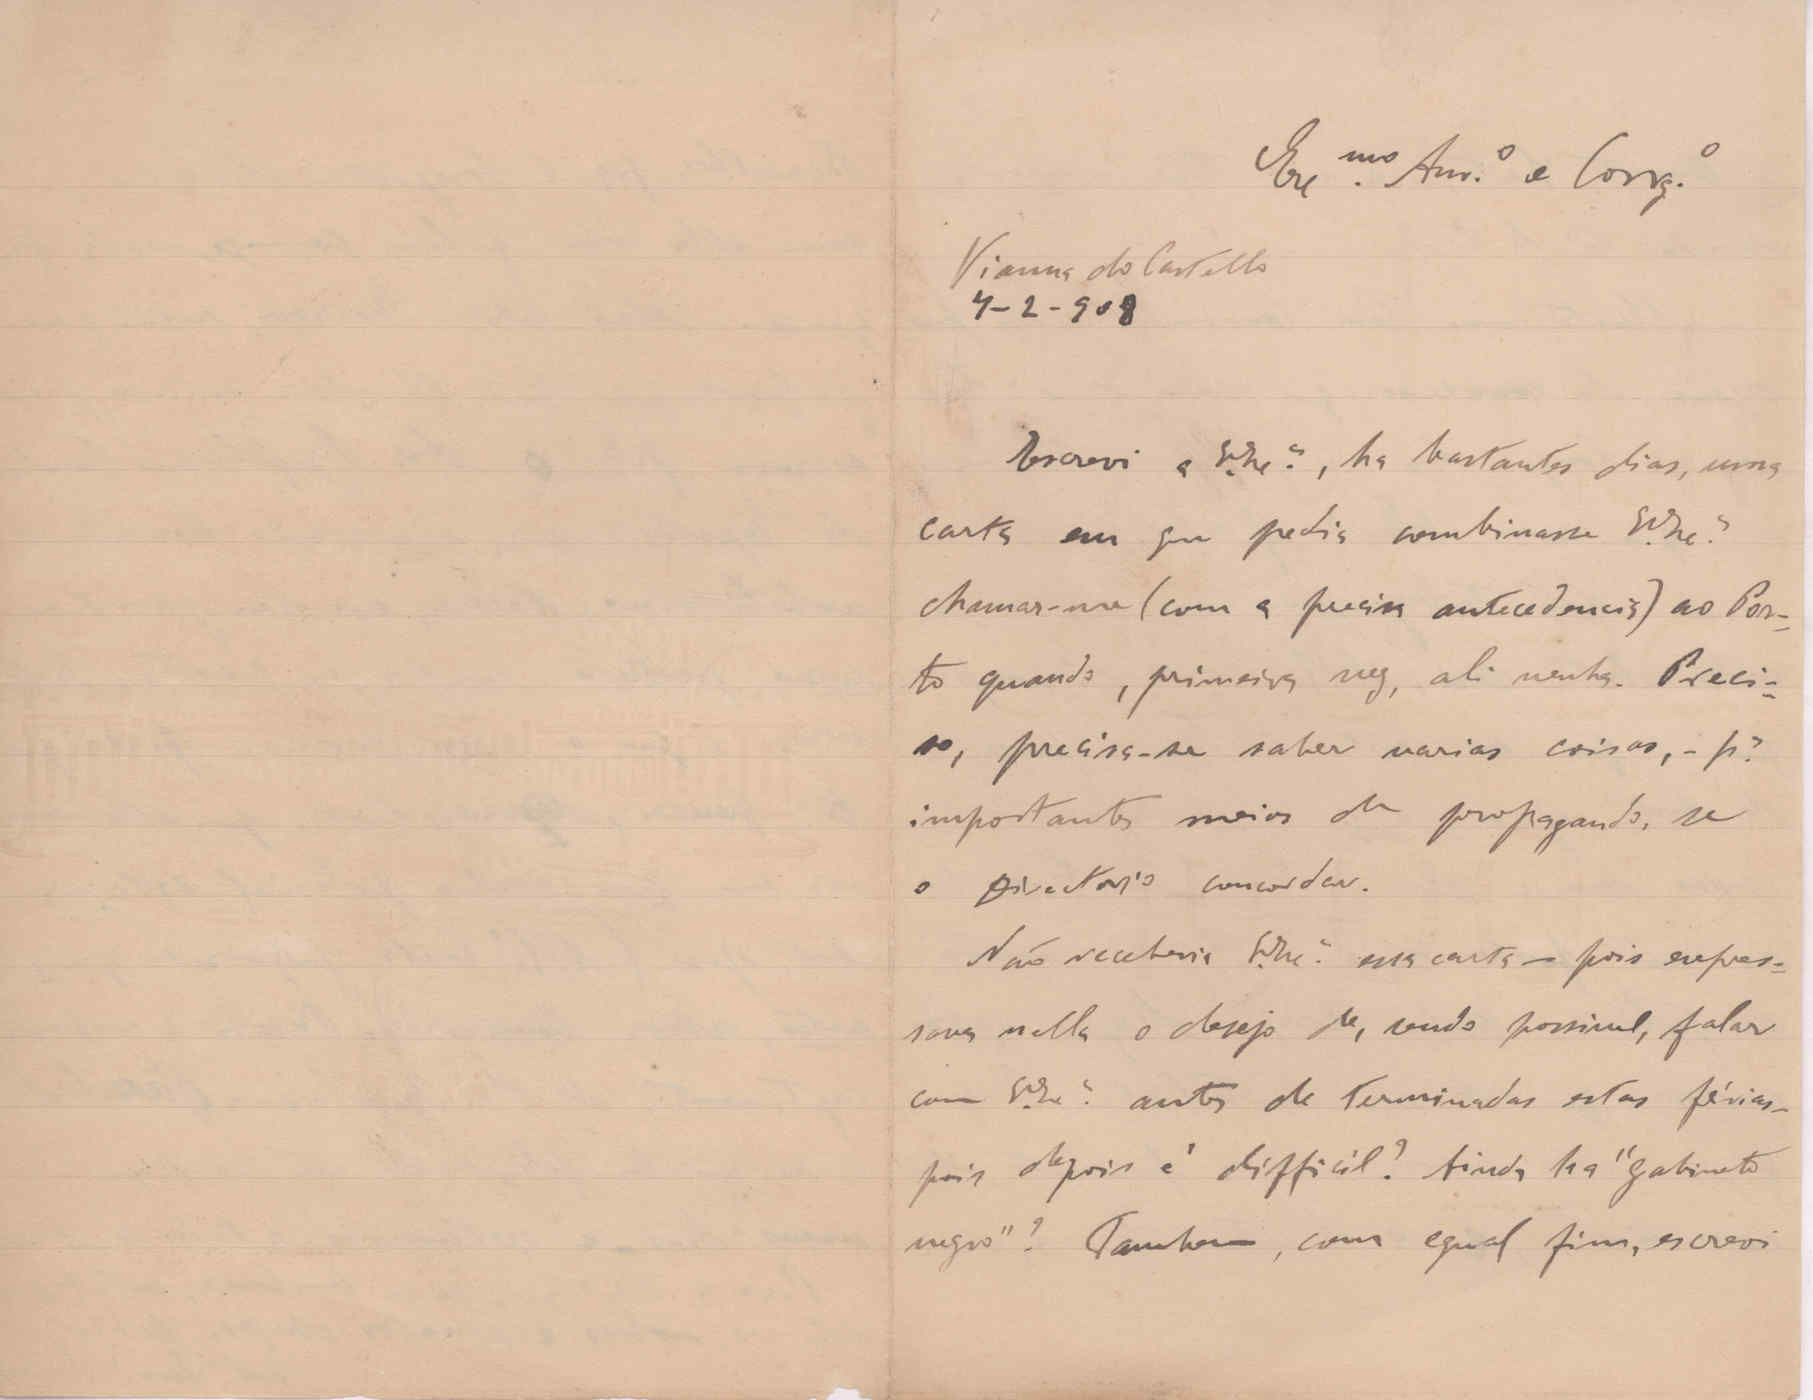 Exc.mo Am.o e Corrg.o
Vianna do Castello
4-2-908
Escrevi a V. Exc.a, ha bastantes dias, uma
carta em que pedia combinasse V. Exc.a
chamar-me (com a precisa antecedencia) ao Por-
to quando, primeira vez, ali venha. Preci-
so, precisa-se saber varias coisas, - p.a
importantes meios de propaganda, se
o Directorio concordar.
Não receberia V. Exc.a essa carta - pois expres-
sava nella o desejo de, sendo possivel, falar
com V. Exc.a antes de terminadas estas férias -
pois depois é difficil? Ainda ha "gabinete
negro"? Tambem, com egual fim, escrevi